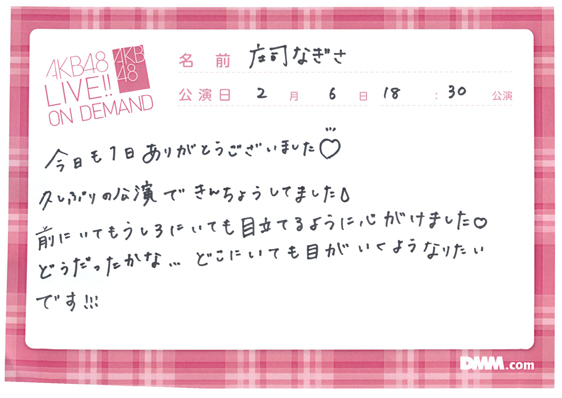 AKB48
LIVE!!
ON DEMAND
AKB
48
名前 庄司なぎさ
公演日 2月6日 18:30 公演
今日も1日ありがとうございました♡
久しぶりの公演できんちょうしてました
前にいてもうしろにいても目立てるように心がけました♡
どうだったかな… どこにいても目がいくようなりたい
です!!!
DMM.com